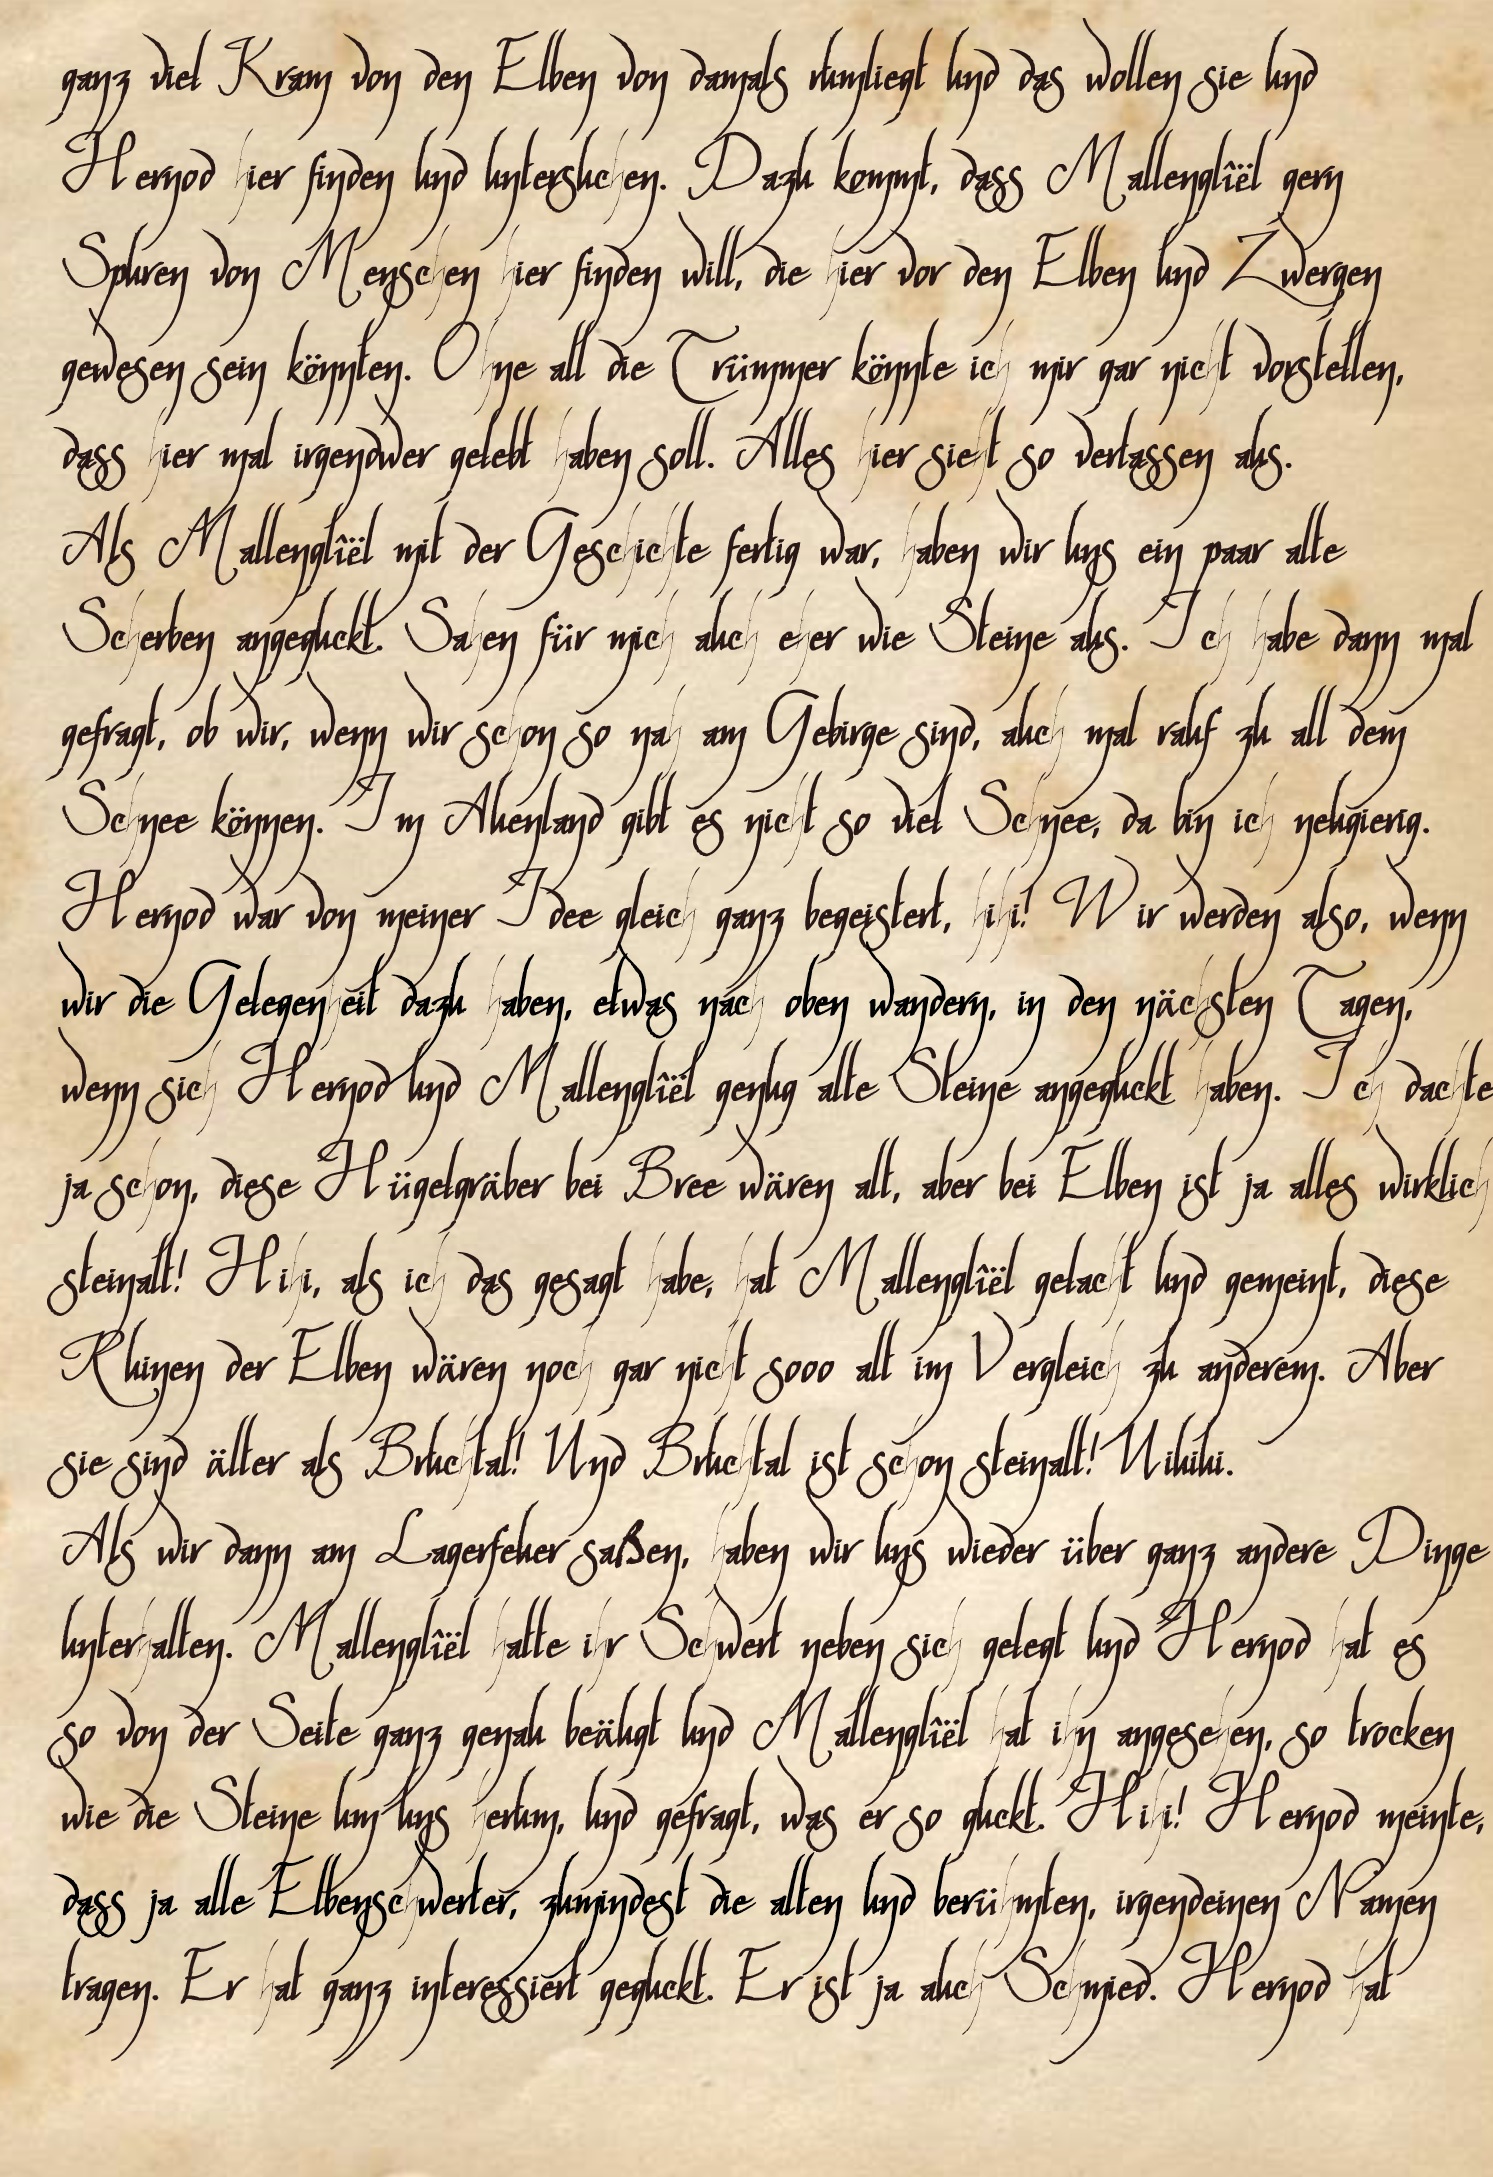 ganz viel Kram von den Elben von damals rumliegt und das wollen sie und
Hernod hier finden und untersuchen. Dazu kommt, dass Mallenglîël gern
Spuren von Menschen hier finden will, die hier vor den Elben und Zwergen
gewesen sein könnten. Ohne all die Trümmer könnte ich mir gar nicht vorstellen,
dass hier mal irgendwer gelebt haben soll. Alles hier sieht so verlassen aus.
Als Mallenglîël mit der Geschichte fertig war, haben wir uns ein paar alte
Scherben angeguckt. Sahen für mich auch eher wie Steine aus. Ich habe dann mal
gefragt, ob wir, wenn wir schon so nah am Gebirge sind, auch mal rauf zu all dem
Schnee können. Im Auenland gibt es nicht so viel Schnee, da bin ich neugierig.
Hernod war von meiner Idee gleich ganz begeistert, hihi! Wir werden also, wenn
wir die Gelegenheit dazu haben, etwas nach oben wandern, in den nächsten Tagen,
wenn sich Hernod und Mallenglîël genug alte Steine angeguckt haben. Ich dachte
ja schon, diese Hügelgräber bei Bree wären alt, aber bei Elben ist ja alles wirklich
steinalt! Hihi, als ich das gesagt habe, hat Mallenglîël gelacht und gemeint, diese
Ruinen der Elben wären noch gar nicht sooo alt im Vergleich zu anderem. Aber
sie sind älter als Bruchtal! Und Bruchtal ist schon steinalt! Uiuiui.
Als wir dann am Lagerfeuer saßen, haben wir uns wieder über ganz andere Dinge
unterhalten. Mallenglîël hatte ihr Schwert neben sich gelegt und Hernod hat es
so von der Seite ganz genau beäugt und Mallenglîël hat ihn angesehen, so trocken
wie die Steine um uns herum, und gefragt, was er so guckt. Hihi! Hernod meinte,
dass ja alle Elbenschwerter, zumindest die alten und berühmten, irgendeinen Namen
tragen. Er hat ganz interessiert geguckt. Er ist ja auch Schmied. Hernod hat